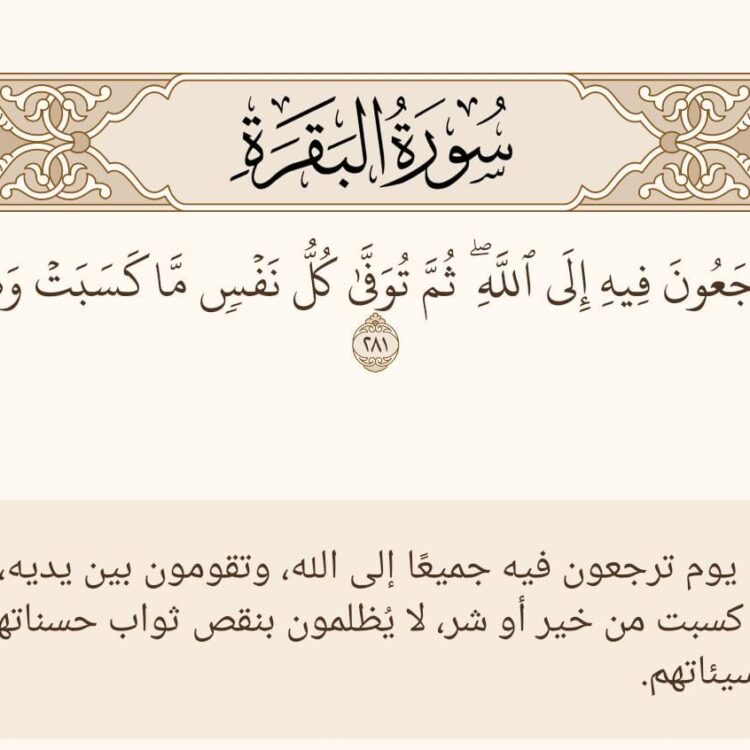 سُورَةُ البَقَرَةِ
جَعُونَ فِيهِ إِلَى ٱللَّهِۖ ثُمَّ تُوَفَّىٰ كُلُّ نَفۡسٖ مَّا كَسَبَتۡ
٢٨١
يوم ترجعون فيه جميعًا إلى الله، وتقومون بين يديه،
كسبت من خير أو شر، لا يُظلمون بنقص ثواب حسناته
سيئاتهم.